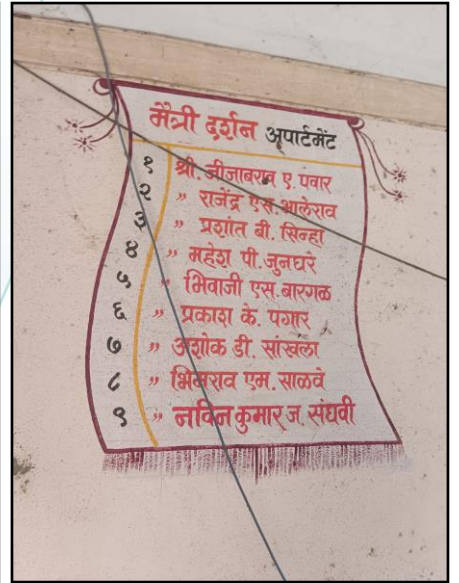 मैत्री दर्शन अपार्टमेंट
१ श्री. जीजाबराव ए. पवार
२ " राजेंद्र एस. भालेराव
३ " प्रशांत बी. सिन्हा
४ " महेश पी. जुनघरे
५ " भिवाजी एस. बारगळ
६ " प्रकाश के. पगार
७ " अशोक डी. सांखला
८ " भिमराव एम. साळवे
९ " नविन कुमार ज. संघवी